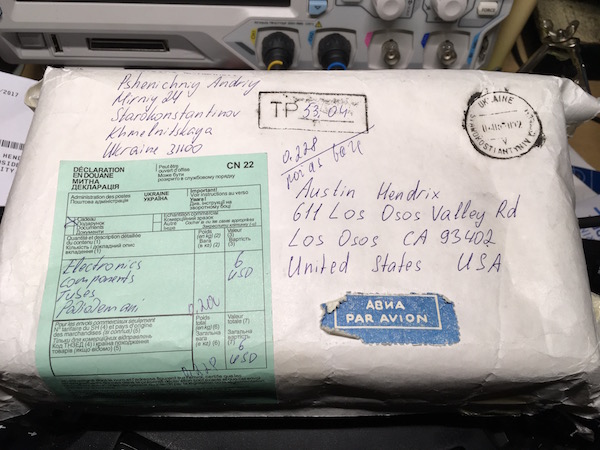 Pshenichniy Andriy
Mirniy 24
Starokonstantinov
Khmelnitskaya
Ukraine 31100
TP 53-04
UKRAINE
0.228
Austin Hendrix
611 Los Osos Valley Rd
Los Osos CA 93402
United States USA
АВІА
PAR AVION
DÉCLARATION
EN DOUANE
МИТНА
ДЕКЛАРАЦІЯ
Peut être
ouvert d'office
Може бути
відкрито в службовому порядку
CN 22
Administration des postes
Поштова адміністрація
UKRAINE
УКРАЇНА
Important!
Voir instructions au verso
Увага!
Cadeau
Подарунок
Documents
Документи
Echantillon commercial
Комерційний зразок
Quantité et description détaillée
du contenu (1)
Кількість і докладний опис
вкладення (1)
Poids
(en kg) (2)
Вага
(в кг) (2)
Valeur
(3)
Вартість
(3)
Electronics
components
Tubes
Радіодеталі
6
USD
Pour les envois commerciaux seulement
N° tarifaire du SH (4) et pays d'origine
des marchandises (si connus) (5)
Тільки для комерційних відправлень
Код ТНЗЕД (4) і країна походження
товарів (якщо відомо) (5)
Poids
total
(en kg) (6)
Загальна
вага
(в кг) (6)
Valeur
totale (7)
Загальна
вартість (7)
6
USD
/2017
HEN